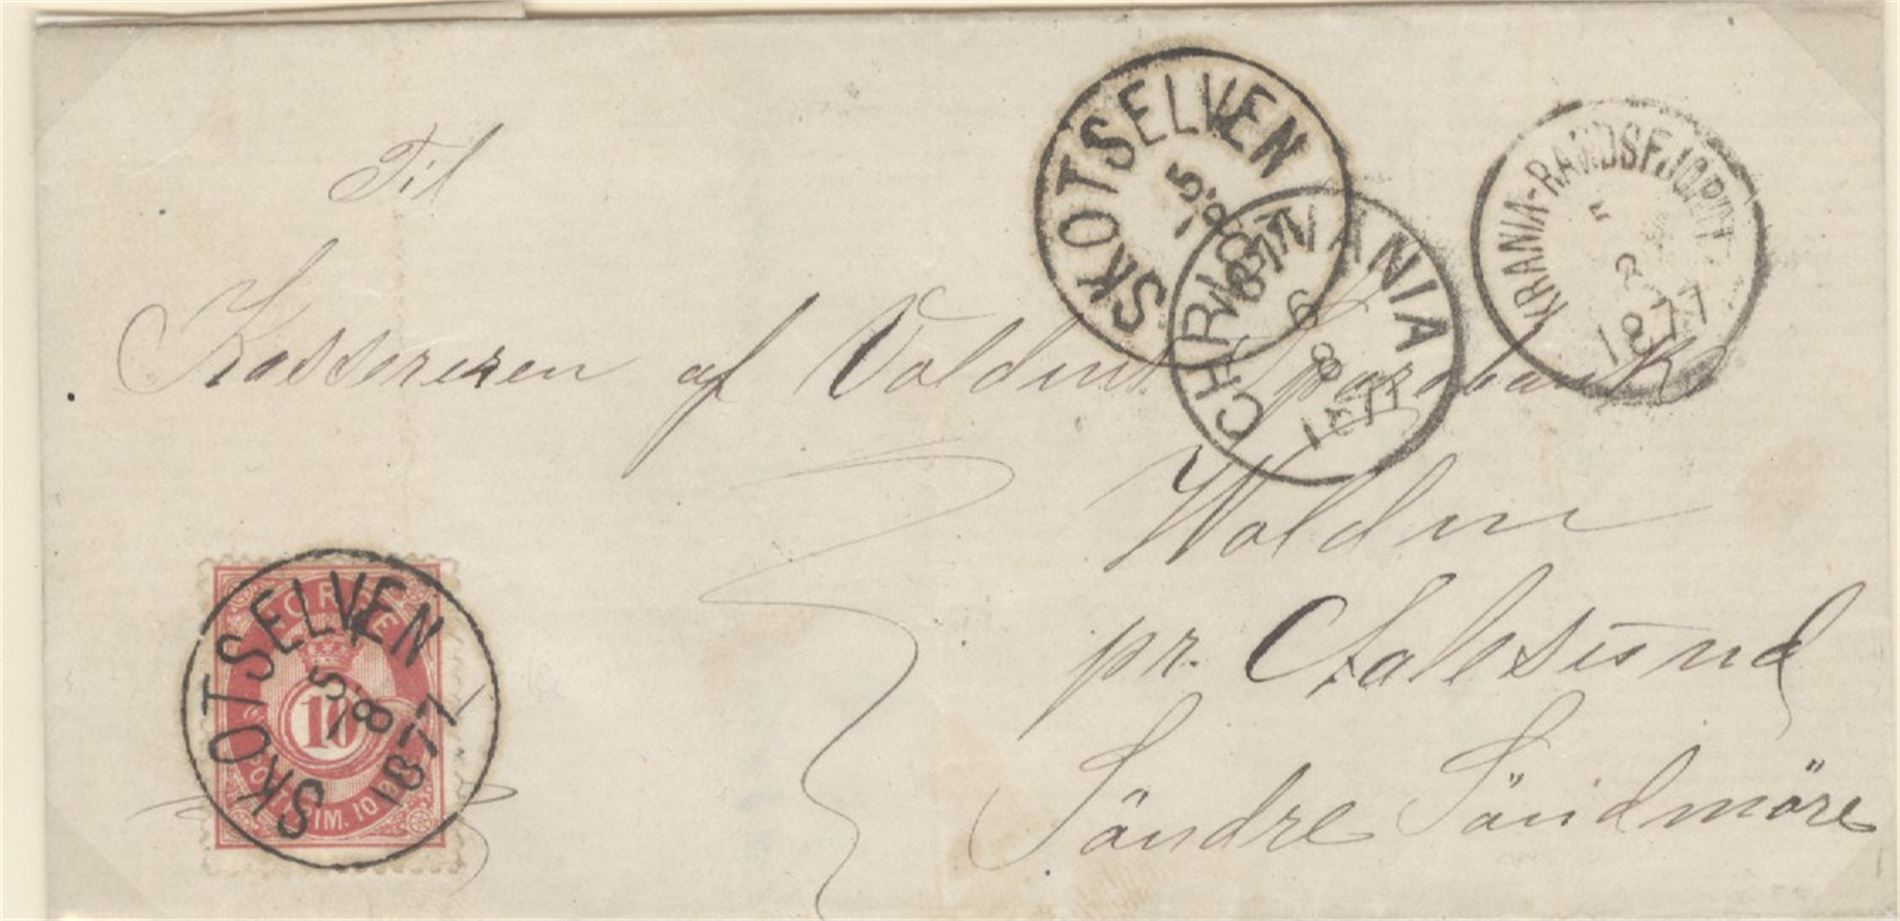 Til
Kassereren af Voldens Sparebank
Wolden
pr. Aalesund
Söndre Söndmöre
SKOTSELVEN
5.8
1877
CHRISTIANIA
6
8
1877
KRANIA-RANDSFJORD
8
1877
NORGE
10
POSTFRIM. 10
SKOTSELVEN
5.8
1877